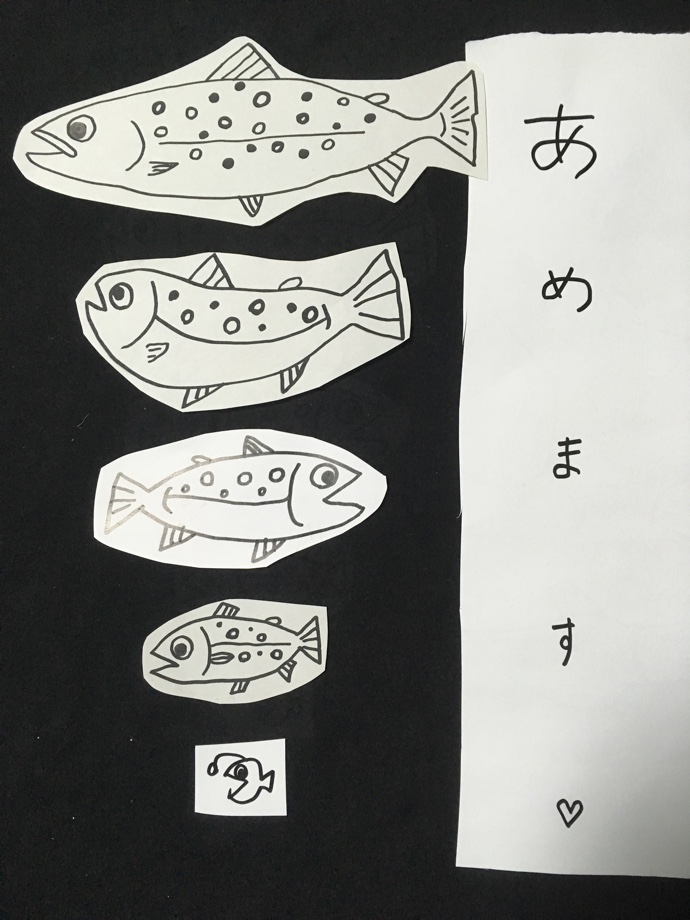 あめます♡